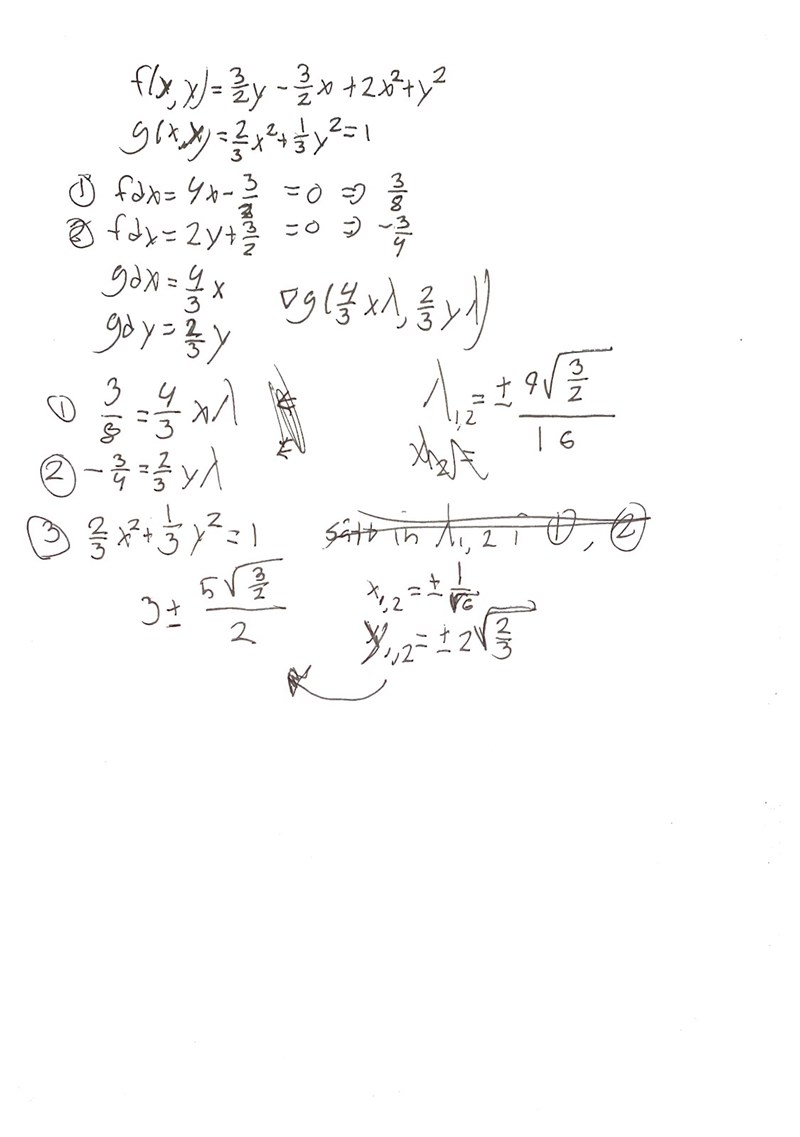 f(x,y)=3/2y-3/2x+2x²+y²
g(x,y)=2/3x²+1/3y²=1
① fdx=4x-3/2 =0 ⇒ 3/8
② fdx=2y+3/2 =0 ⇒ -3/4
gdx=4/3x
gdy=2/3y
∇g(4/3xλ, 2/3yλ)
① 3/8=4/3xλ
② -3/4=2/3yλ
③ 2/3x²+1/3y²=1
λ1,2=±9√(3/2)/16
sätt in λ1,2 i ①, ②
x1,2=±1/√6
y1,2=±2√(2/3)
3±5√(3/2)/2